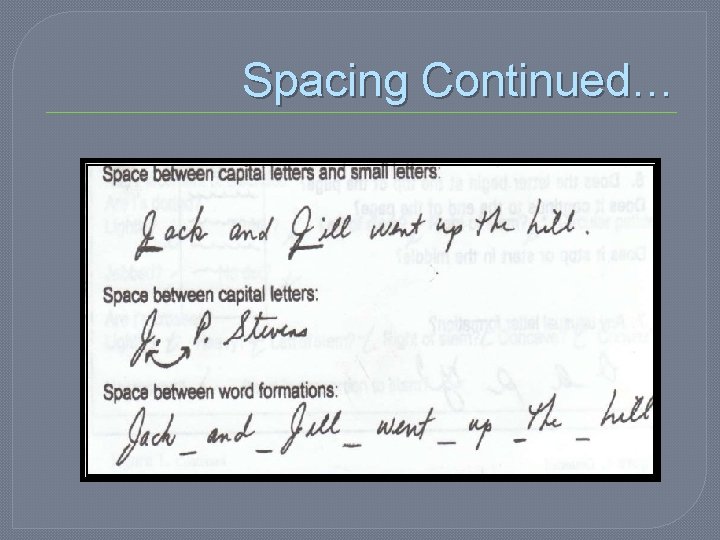 Spacing Continued...
Space between capital letters and small letters:
Jack and Jill went up the hill.
Space between capital letters:
J. P. Stevens
Space between word formations:
Jack _ and _ Jill _ went _ up _ the _ hill